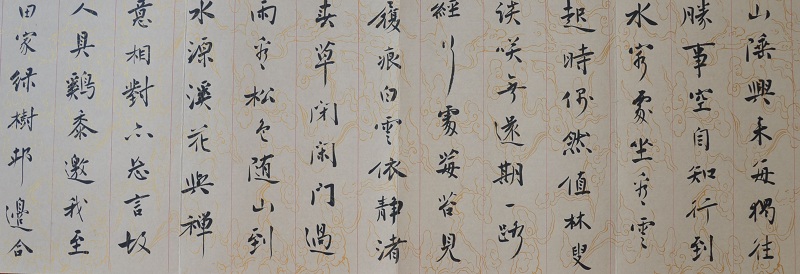 山陲興来每獨往
勝事空自知行到
水窮處坐看雲
起時偶然值林叟
談咲無還期一路
經行處莓苔見
履痕白雲依靜渚
春草閉閑門過
雨看松色随山到
水源溪花與禅
意相對亦忘言故
人具鷄黍邀我至
田家緑樹邨邊合